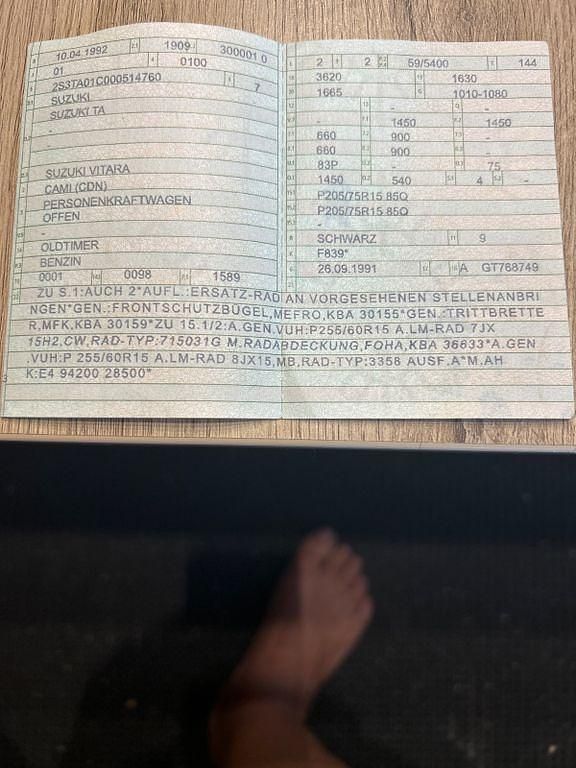 10.04.1992 1909 300001 0
01 0100
2S3TA01C000514760 7
SUZUKI
SUZUKI TA
-
-
SUZUKI VITARA
CAMI (CDN)
PERSONENKRAFTWAGEN
OFFEN
-
OLDTIMER
BENZIN
0001 0098 1589
2 2 59/5400 144
3620 1630
1665 1010-1080
- -
- 1450 1450
660 900 -
660 900 -
83P - 75
1450 540 4 -
P205/75R15 85Q
P205/75R15 85Q
-
SCHWARZ 9
F839*
26.09.1991 A GT768749
ZU S.1:AUCH 2*AUFL.:ERSATZ-RAD AN VORGESEHENEN STELLENANBRI
NGEN*GEN.:FRONTSCHUTZBÜGEL,MEFRO,KBA 30155*GEN.:TRITTBRETTE
R,MFK,KBA 30159*ZU 15.1/2:A.GEN.VUH:P255/60R15 A.LM-RAD 7JX
15H2,CW,RAD-TYP:715031G M.RADABDECKUNG,FOHA,KBA 36633*A.GEN
.VUH:P 255/60R15 A.LM-RAD 8JX15,MB,RAD-TYP:3358 AUSF.A*M.AH
K:E4 94200 28500*